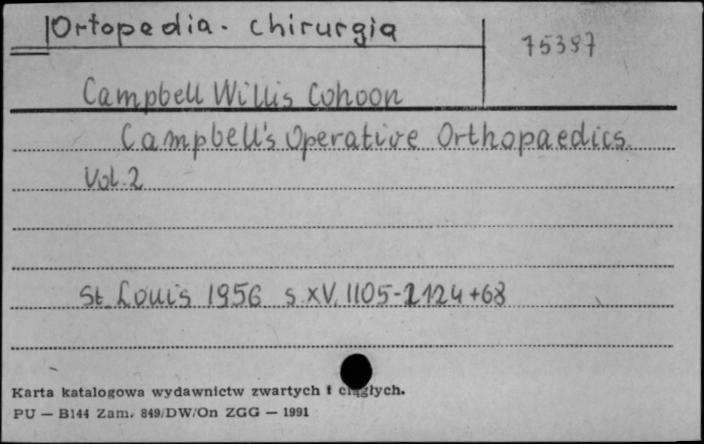 Ortopedia - chirurgia
75397
Campbell Willis Cohoon
Campbell's Operative Orthopaedics
Vol. 2
St. Louis 1956 s. XV, 1105-2124+68
Karta katalogowa wydawnictw zwartych i ciągłych.
PU — B144 Zam. 849/DW/On ZGG — 1991